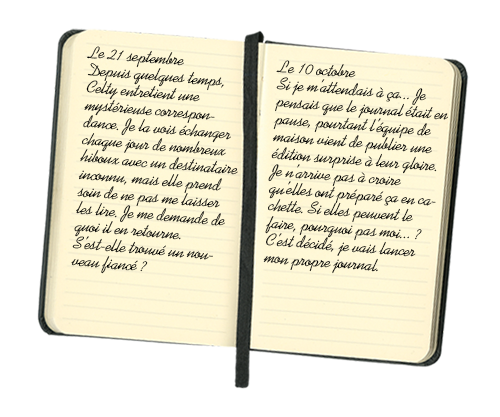 Le 21 septembre
Depuis quelques temps,
Celty entretient une
mystérieuse correspon-
dance. Je la vois échanger
chaque jour de nombreux
hiboux avec un destinataire
inconnu, mais elle prend
soin de ne pas me laisser
les lire. Je me demande de
quoi il en retourne.
S'est-elle trouvé un nou-
veau fiancé ?
Le 10 octobre
Si je m'attendais à ça... Je
pensais que le journal était en
pause, pourtant l'équipe de
maison vient de publier une
édition surprise à leur gloire.
Je n'arrive pas à croire
qu'elles ont préparé ça en ca-
chette. Si elles peuvent le
faire, pourquoi pas moi... ?
C'est décidé, je vais lancer
mon propre journal.